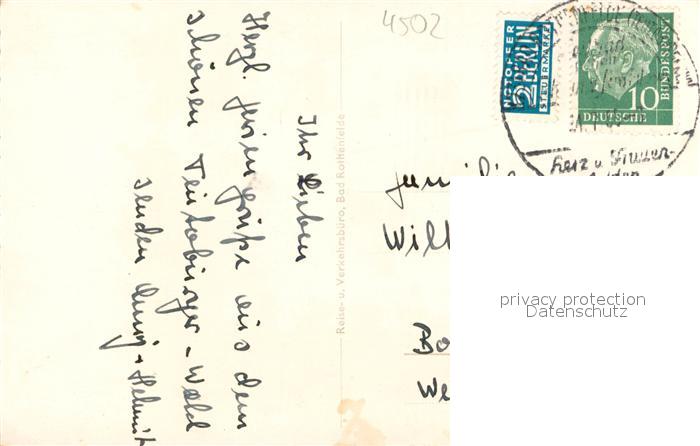 4502
NOTOPFER
2 BERLIN
STEUERMARKE
10
DEUTSCHE
BUNDESPOST
Herz u.
Ihr Lieben
Herzl. Feriengrüße aus dem
schönen Teutoburger-Wald
senden
+ Helmut
Reise- u. Verkehrsbüro, Bad Rothenfelde
Familie
Will
Bo
We
privacy protection
Datenschutz